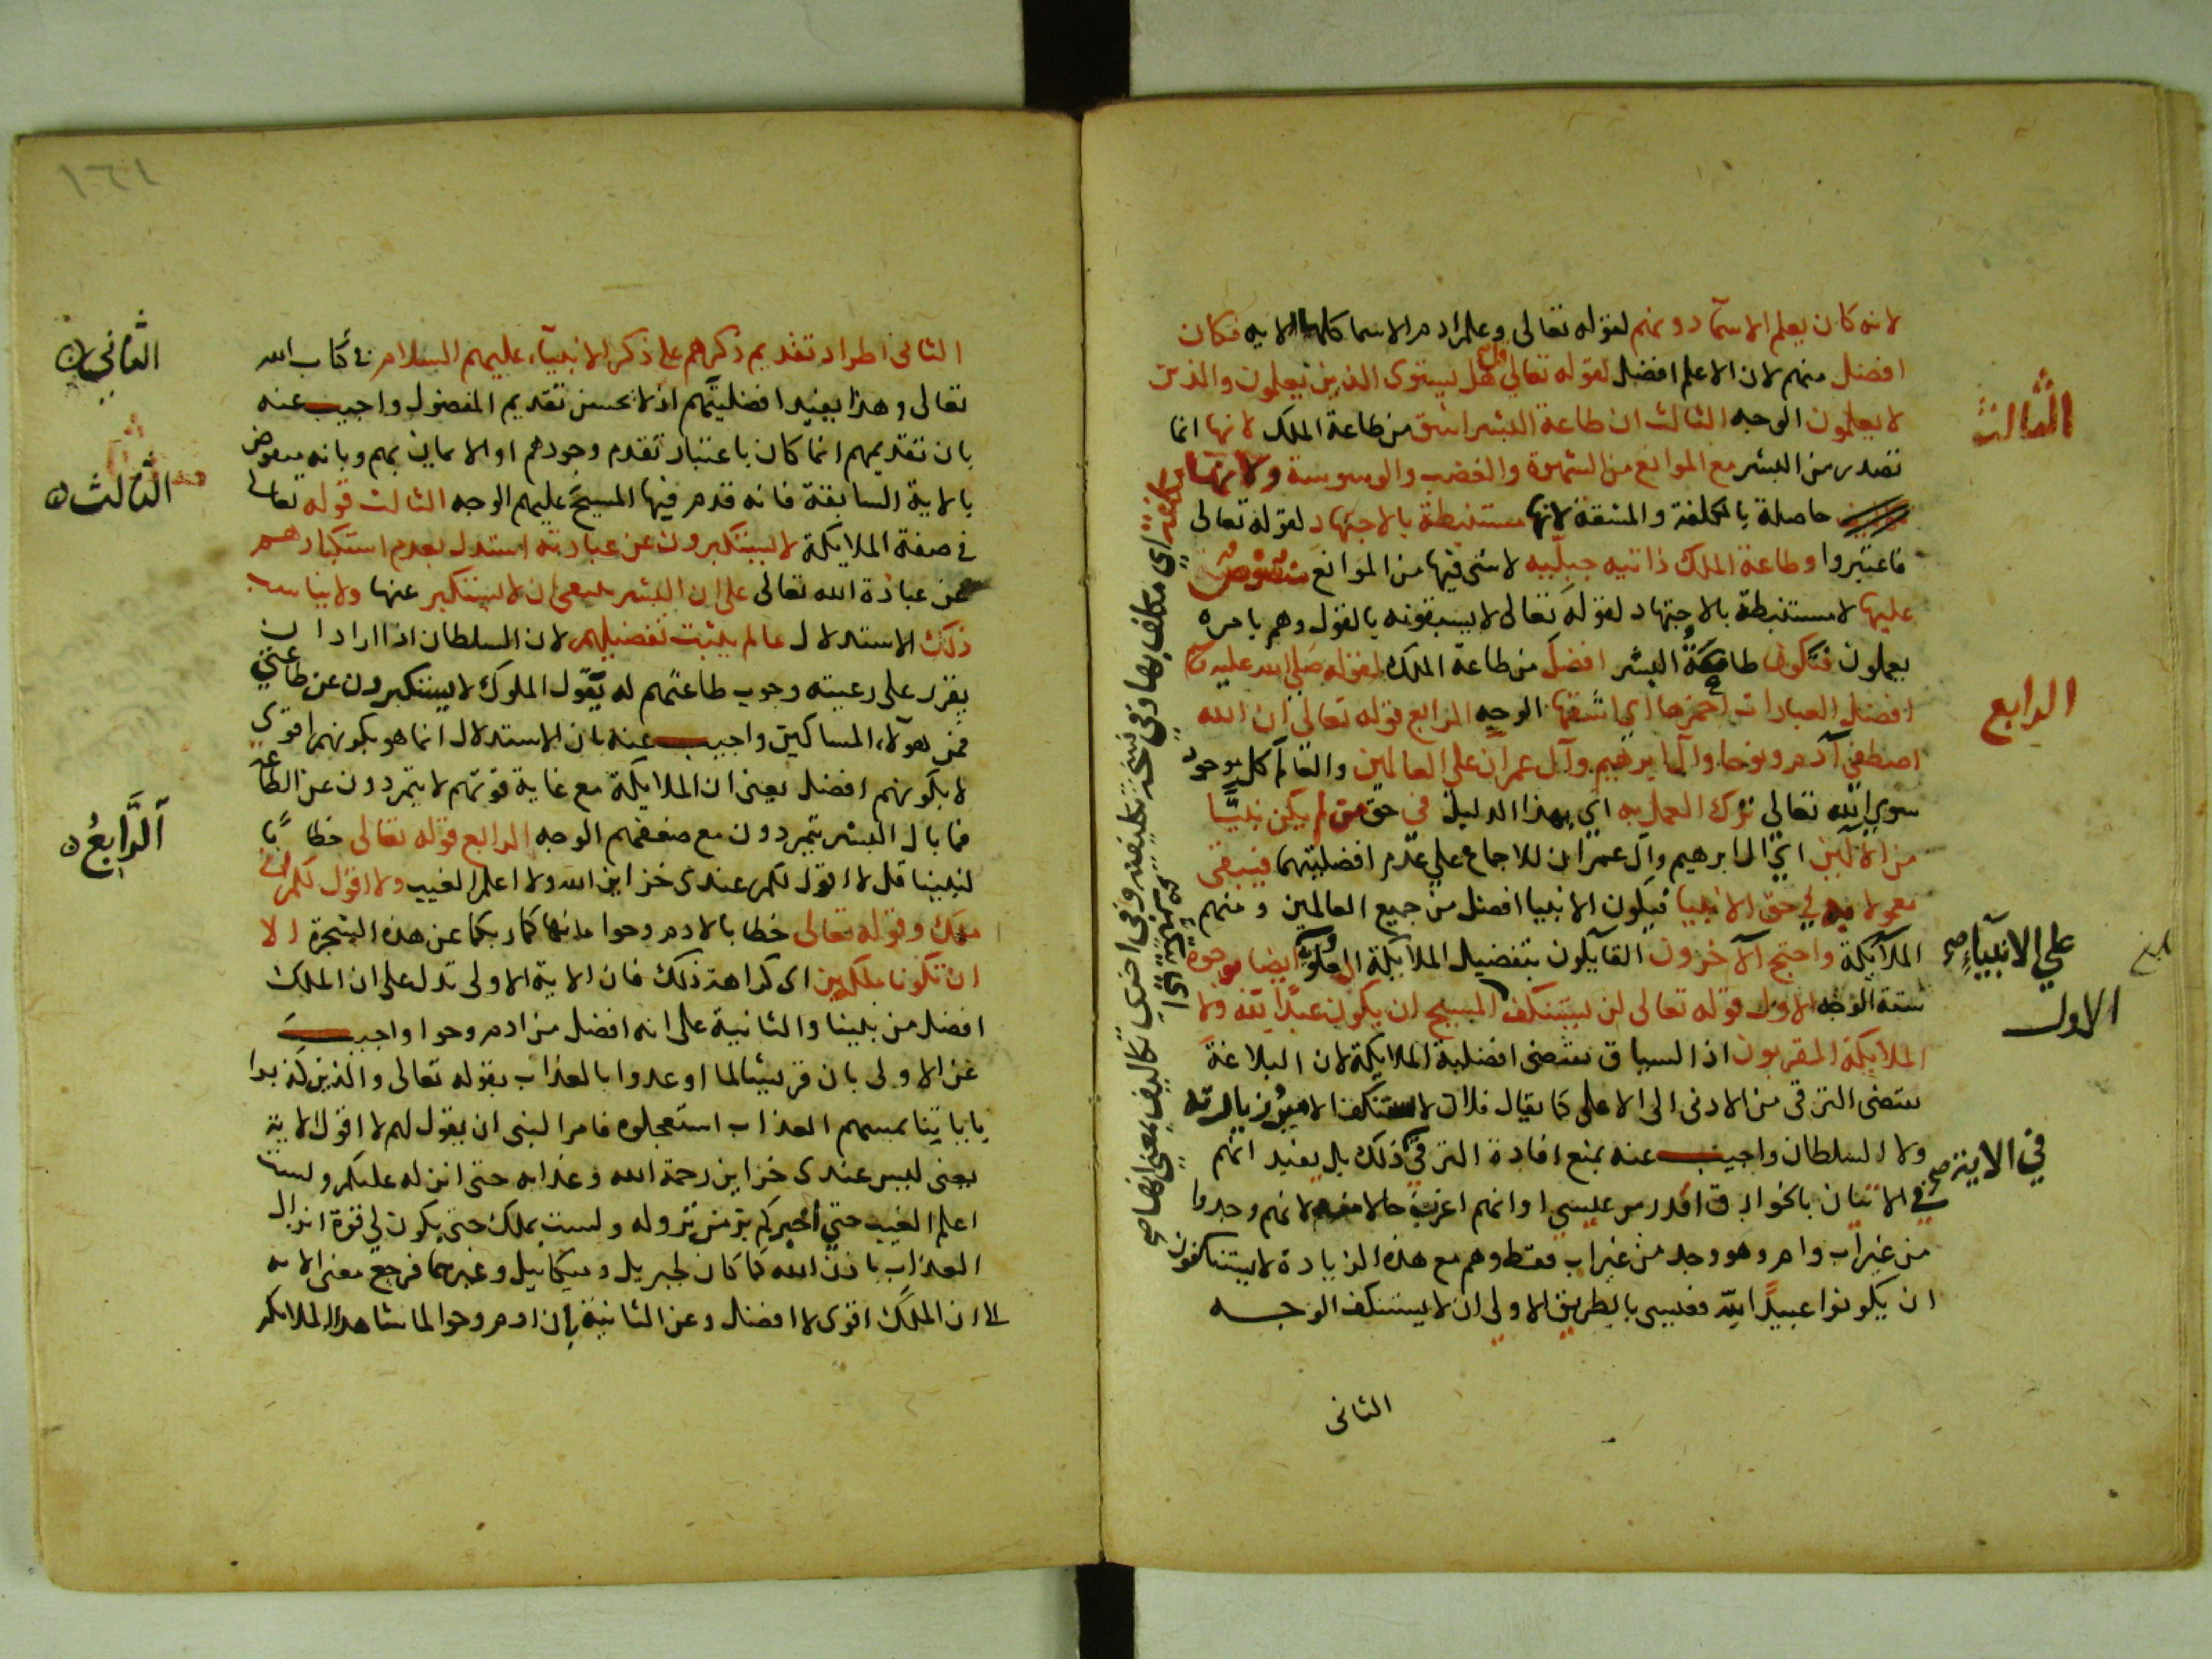 لانه كان يعلم الاسمآ دونهم لقوله تعالى وعلم ادم الاسما كلها الايه فكان
افضل منهم لان الاعلم افضل لقوله تعالى هل يستوى الذين يعلمون والذين
لا يعلمون الوجه الثالث ان طاعة البشر اشق من طاعة الملك لانها انما
تصدر من البشر مع الموانع من الشهوة والغضب والوسوسة ولانها
حاصلة بالكلفة والمشقة لانها مستنبطة بالاجتهاد لقوله تعالى
فاعتبروا وطاعة الملك ذاتيه جبليه لا شى فيها من الموانع منصوص
عليها لا مستنبطة بالاجتهاد لقوله تعالى لا يسبقونه بالقول وهم بامره
يعملون فتكون طاعة البشر افضل من طاعة الملك لقوله صلى الله عليه
افضل العبادات احمزها اي اشقها الوجه الرابع قوله تعالى ان الله
اصطفى آدم ونوحا وآل ابرهيم وآل عمران على العالمين والعالم كل موجود
سوى الله تعالى ترك العمل به اي بهذا الدليل فى حق من لم يكن نبيًّا
من الآلين اي ال ابرهيم وآل عمران للاجماع على عدم افضليتهما فيبقى
معمولا به في حق الانبيا فيكون الانبيا افضل من جميع العالمين ومنهم
الملآئكة واحتج الآخرون القآيلون بتفضيل الملآئكة العلويه ايضا بوجوه
ستة الوجه الاول قوله تعالى لن يستنكف المسيح ان يكون عبدا لله ولا
الملايكة المقربون اذ السياق يقتضى افضلية الملايكة لان البلاغة
يقتضى الترقى من الادنى الى الاعلى كما يقال فلان لا يستنكف الامير
ولا السلطان واجيب عنه بمنع افادة الترقي ذلك بل يفيد انهم
في الاتيان بالخوارق اقدر من عيسى او انهم اغرب حالا منه لانهم وجدوا
من غير اب وام وهو وجد من غير اب فقط وهم مع هذه الزيادة لا يستنكفون
ان يكونوا عبيدًا لله فعيسى بالطريق الاولى ان لا يستنكف الوجه
الثانى
الثالث
الرابع
على الانبيآء صح
الاول
في الاية صح
الثانى اطراد تقديم ذكرهم على ذكر الانبيآء عليهم السلام في كتاب الله
تعالى وهذا يفيد افضليتهم اذ لا يحسن تقديم المفضول واجيب عنه
بان تقديمهم انما كان باعتبار تقدم وجودهم او الايمان بهم وبانه معوض
بالاية السابقة فانه قدم فيها المسيح عليهم الوجه الثالث قوله تعالى
في صفة الملايكة لا يستكبرون عن عبادته استدل بعدم استكبارهم
عن عبادة الله تعالى على ان البشر ينبغى ان لا يستكبر عنها ولا يناسب
ذلك الاستدلال ما لم يثبت تفضيلهم لان السلطان اذا اراد ان
يقرر على رعيته وجوب طاعتهم له يقول الملوك لا يستكبرون عن طاعتي
فمن هولآء المساكين واجيب عنه بان الاستدلال انما هو بكونهم اقوى
لا بكونهم افضل يعنى ان الملايكة مع غاية قوتهم لا يتمردون عن الطاعة
فما بال البشر يتمردون مع ضعفهم الوجه الرابع قوله تعالى خطابًا
لنبينا قل لا اقول لكم عندى خزاين الله ولا اعلم الغيب ولا اقول لكم انى
ملك وقوله تعالى خطابا لادم وحوا ما نهاكما ربكما عن هذه الشجرة الا
ان تكونا ملكين اى كراهة ذلك فان الاية الاولى تدل على ان الملك
افضل من نبينا والثانية على انه افضل من ادم وحوا واجيب
عن الاولى بان قريشا لما اوعدوا بالعذاب بقوله تعالى والذين كذبوا
باياتنا يمسهم العذاب استعجلوه فامر النبى ان يقول لهم لا اقول الاية
يعنى ليس عندى خزاين رحمة الله وعذابه حتى انزله عليكم ولست
اعلم الغيب حتى اخبركم بزمن نزوله ولست بملك حتى يكون لي قوة انزال
العذاب باذن الله كما كان لجبريل وميكائيل وغيرهما فرجع معنى الاية
الى ان الملك اقوى لا افضل وعن الثانية بان ادم وحوا لما شاهدا الملائكة
الثاني
الثالث
الرابع
١٦١